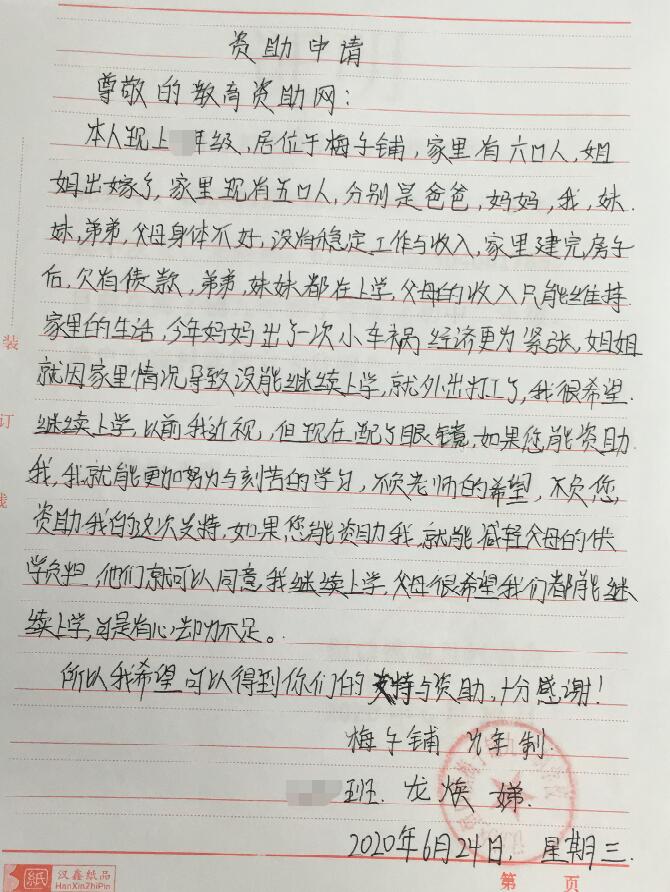 资助申请
尊敬的教育资助网：
本人现上年级，居位于梅子铺，家里有六口人，姐
姐出嫁了，家里现有五口人，分别是爸爸，妈妈，我，妹
妹，弟弟，父母身体不好，没有稳定工作与收入，家里建完房子
后，欠有债款，弟弟，妹妹都在上学，父母的收入只能维持
家里的生活，今年妈妈出了一次小车祸经济更为紧张，姐姐
就因家里情况导致没能继续上学，就外出打工了，我很希望
继续上学，以前我近视，但现在配了眼镜，如果您能资助
我，我就能更加努力与刻苦的学习，不负老师的希望，不负您
资助我的这次支持，如果您能资助我，就能减轻父母的供
学负担，他们就可以同意我继续上学，父母很希望我们都能继
续上学，可是有心却力不足。
所以我希望可以得到你们的支持与资助，十分感谢！
梅子铺九年制
班 龙焕娣
2020年6月24日，星期三.
装
订
线
纸 汉鑫纸品
HanXinZhiPin
第 页